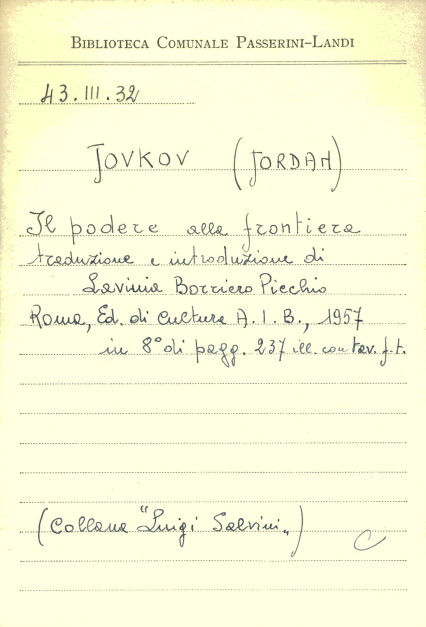 BIBLIOTECA COMUNALE PASSERINI-LANDI
43.III.32
JOVKOV (JORDAN)
Il podere alla frontiera
traduzione e introduzione di
Lavinia Borriero Picchio
Roma, Ed. di Cultura A.I.B., 1957
in 8° di pagg. 237 ill. con tav. f.t.
(Collana "Luigi Salvini")
C